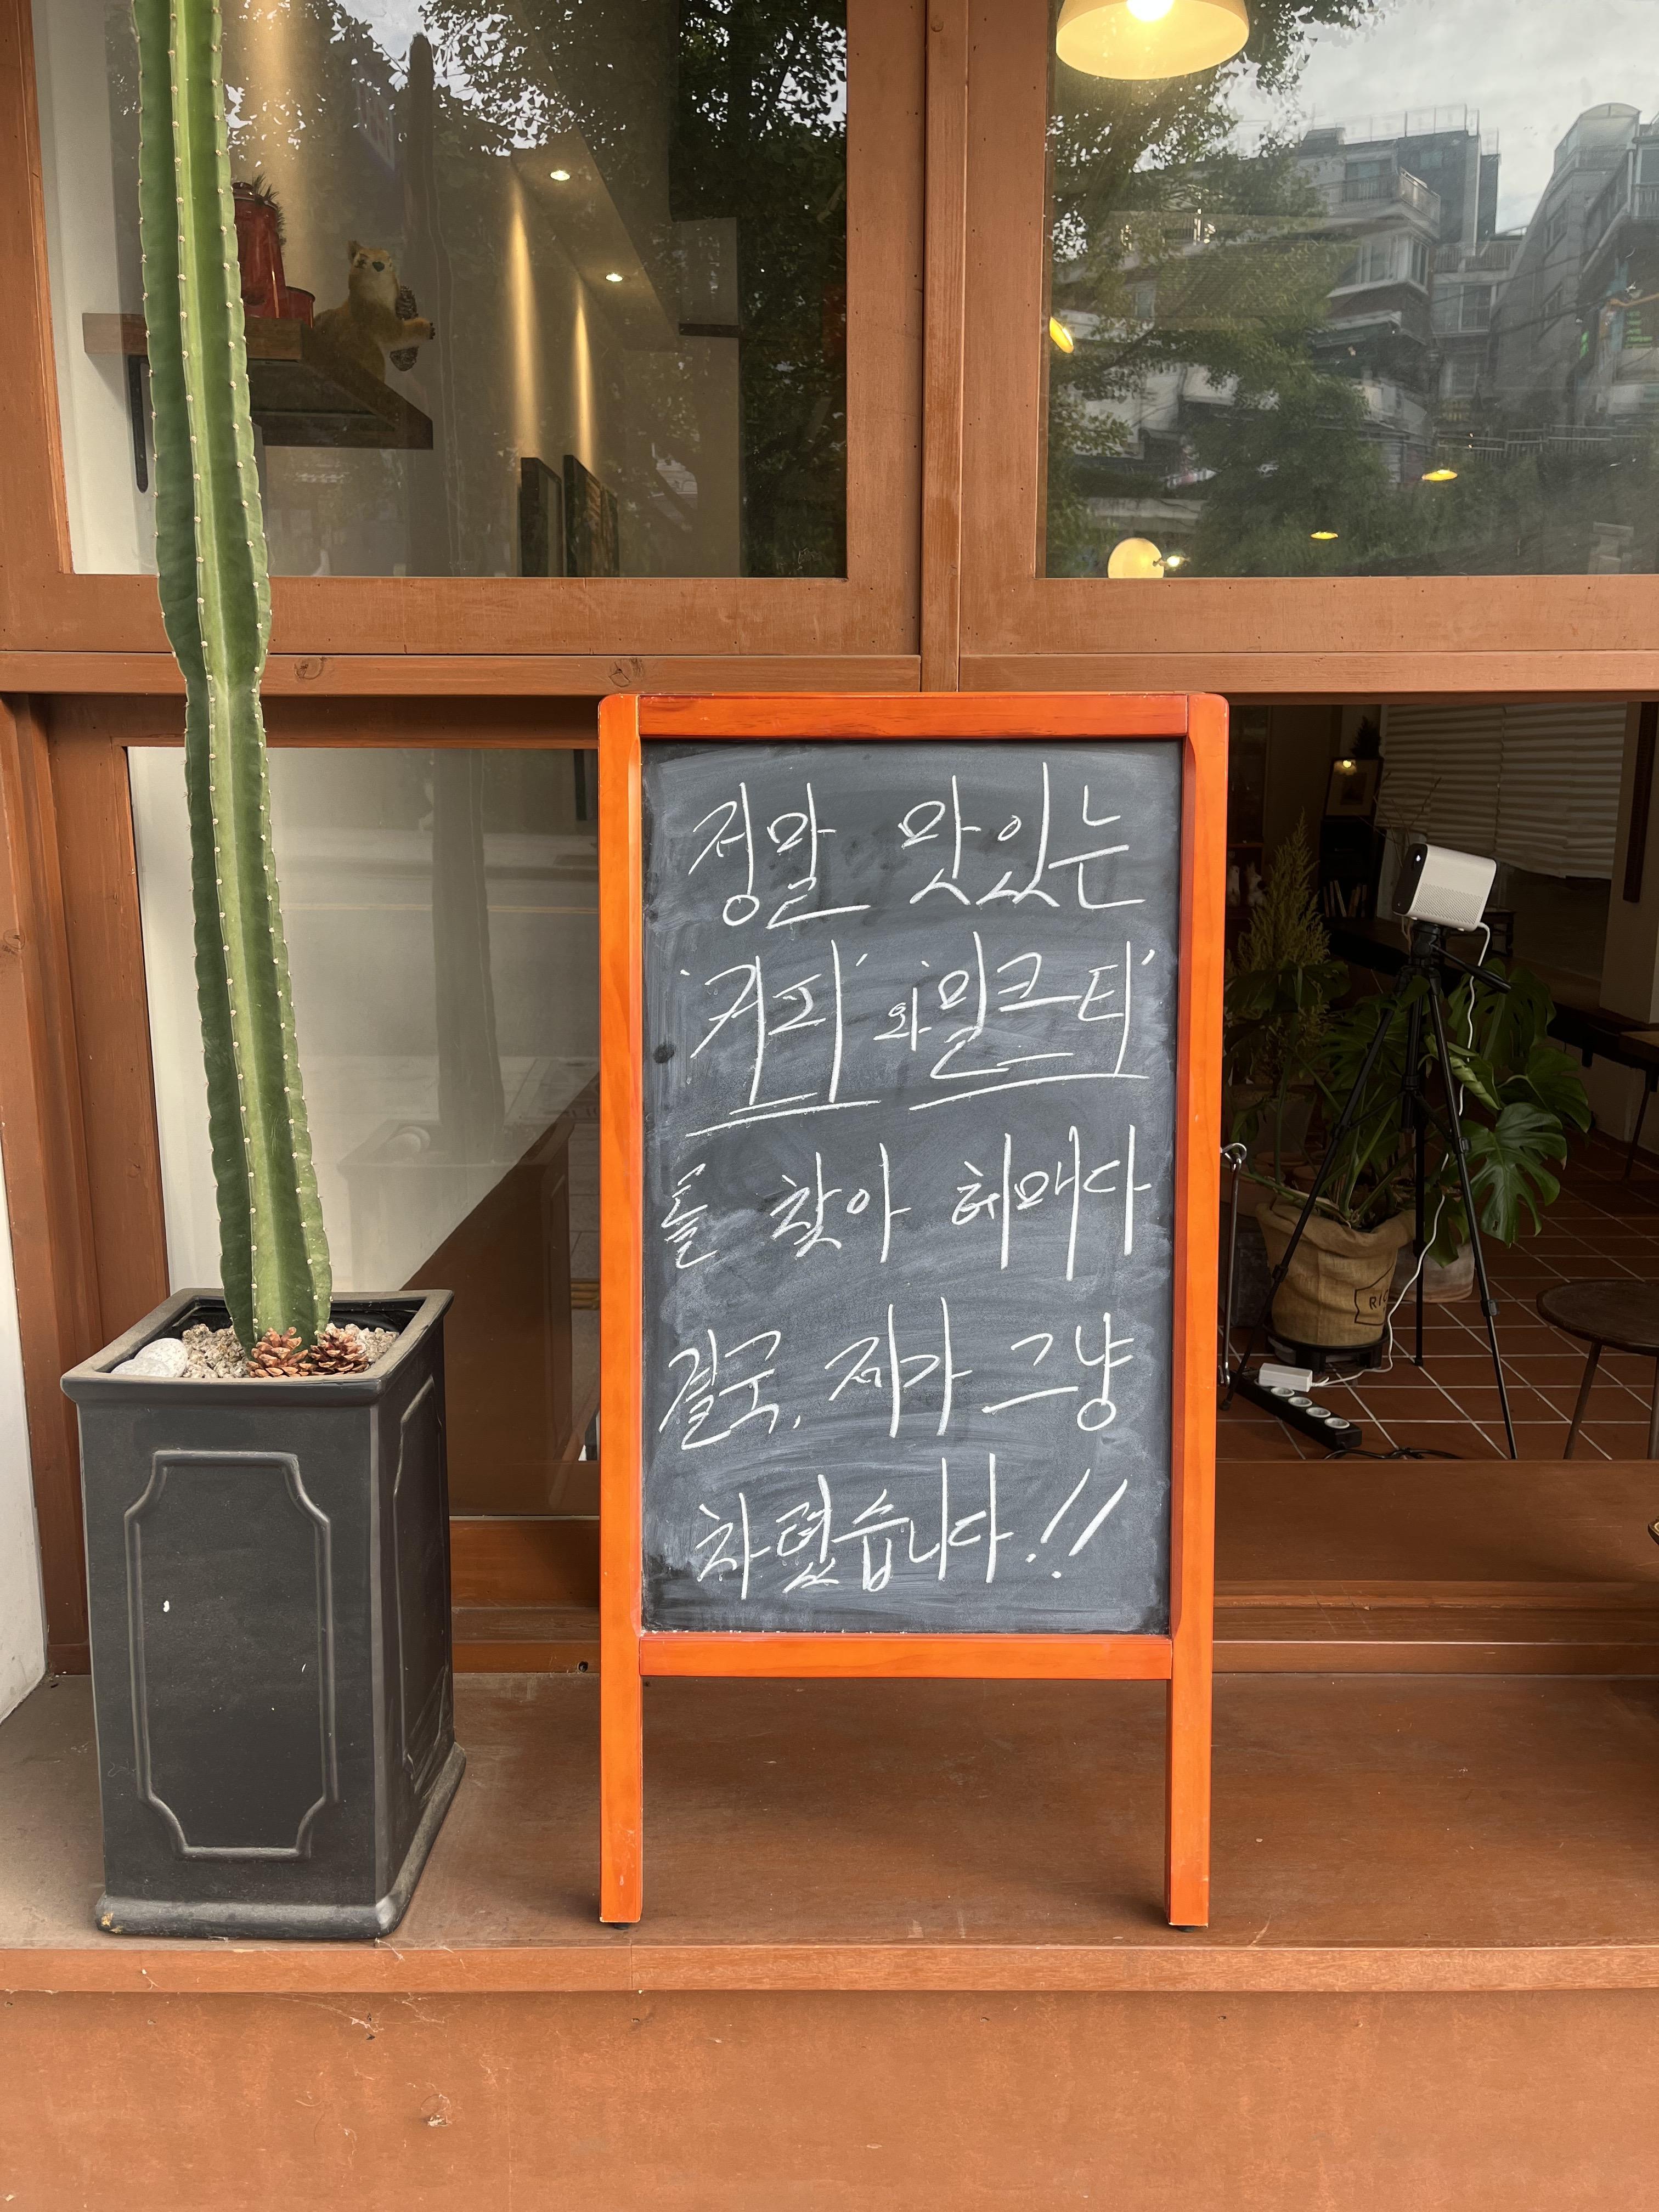 정말 맛있는
'커피'와 '밀크티'
를 찾아 헤매다
결국, 제가 그냥
차렸습니다!!